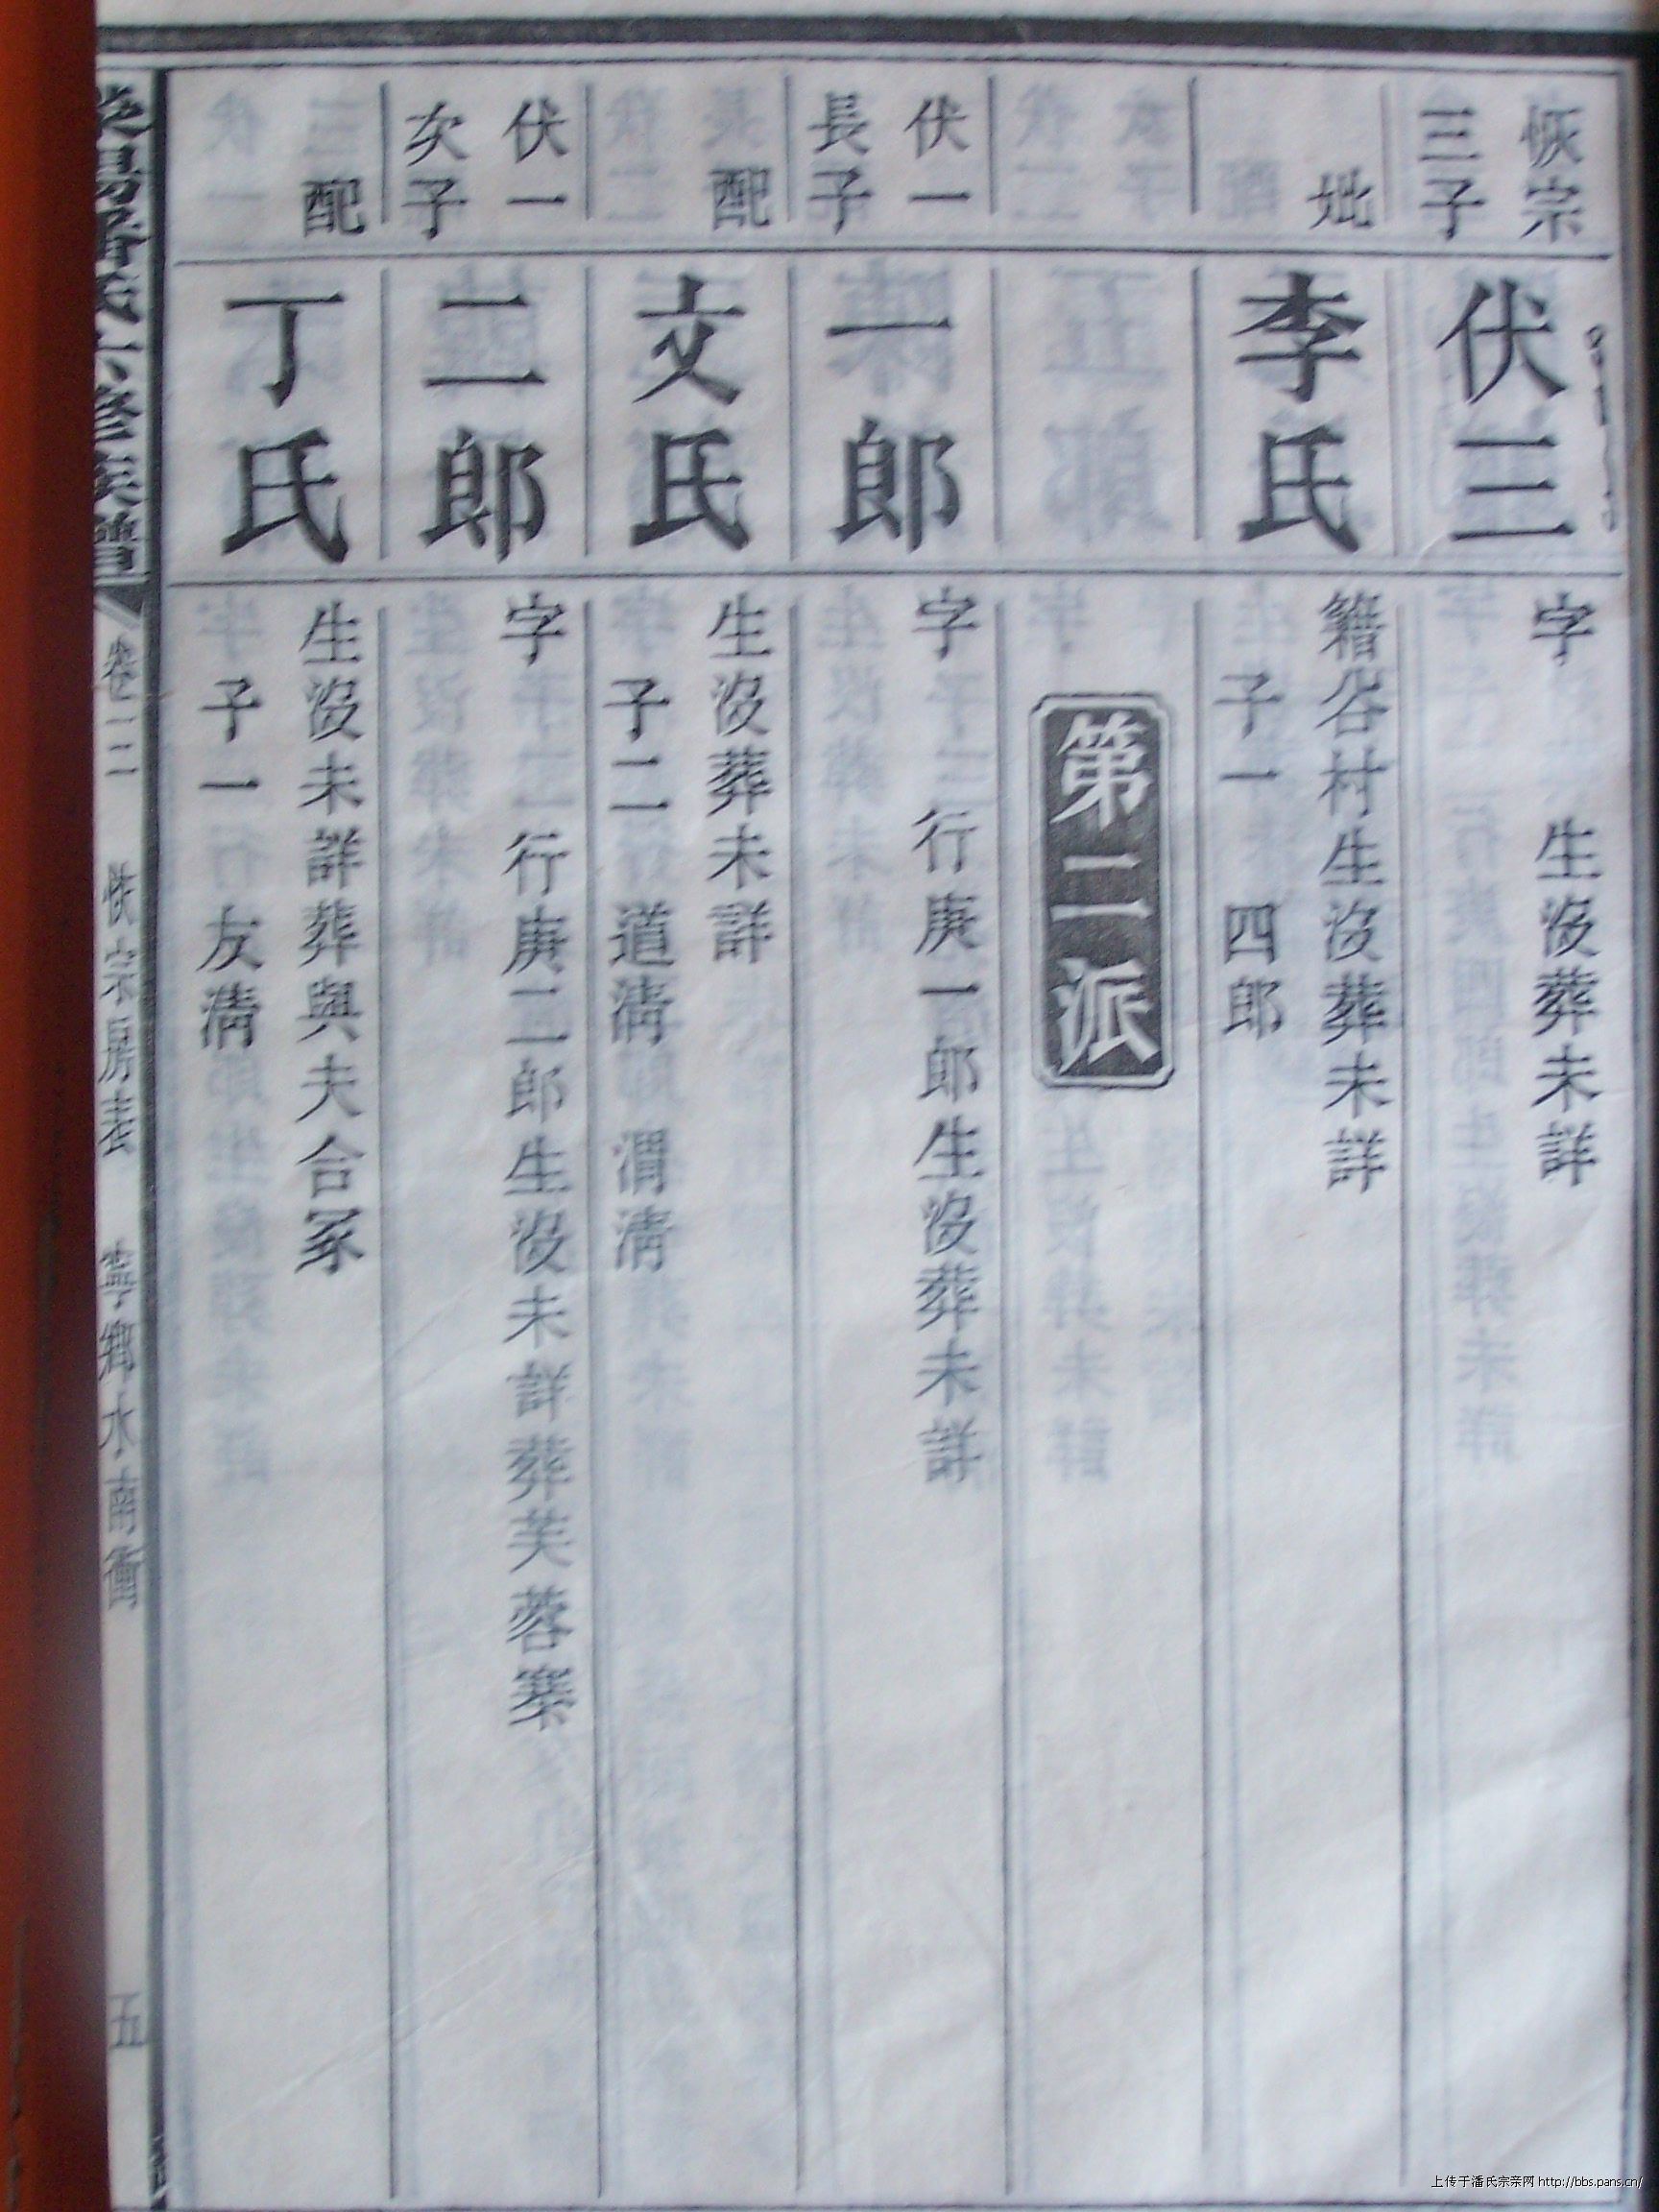 恢宗
三子
伏三
字 生沒葬未詳
妣
李氏
籍谷村生沒葬未詳
子一 四郎
第二派
伏一
長子
一郎
字 行庚一郎生沒葬未詳
配
文氏
生沒葬未詳
子二 道清 渭清
伏一
次子
二郎
字 行庚二郎生沒未詳葬芙蓉寨
配
丁氏
生沒未詳葬與夫合冢
子一 友清
六修族譜
卷二 恢宗房 寧鄉水南衝
五
上传于潘氏宗亲网 http://bbs.pans.cn/